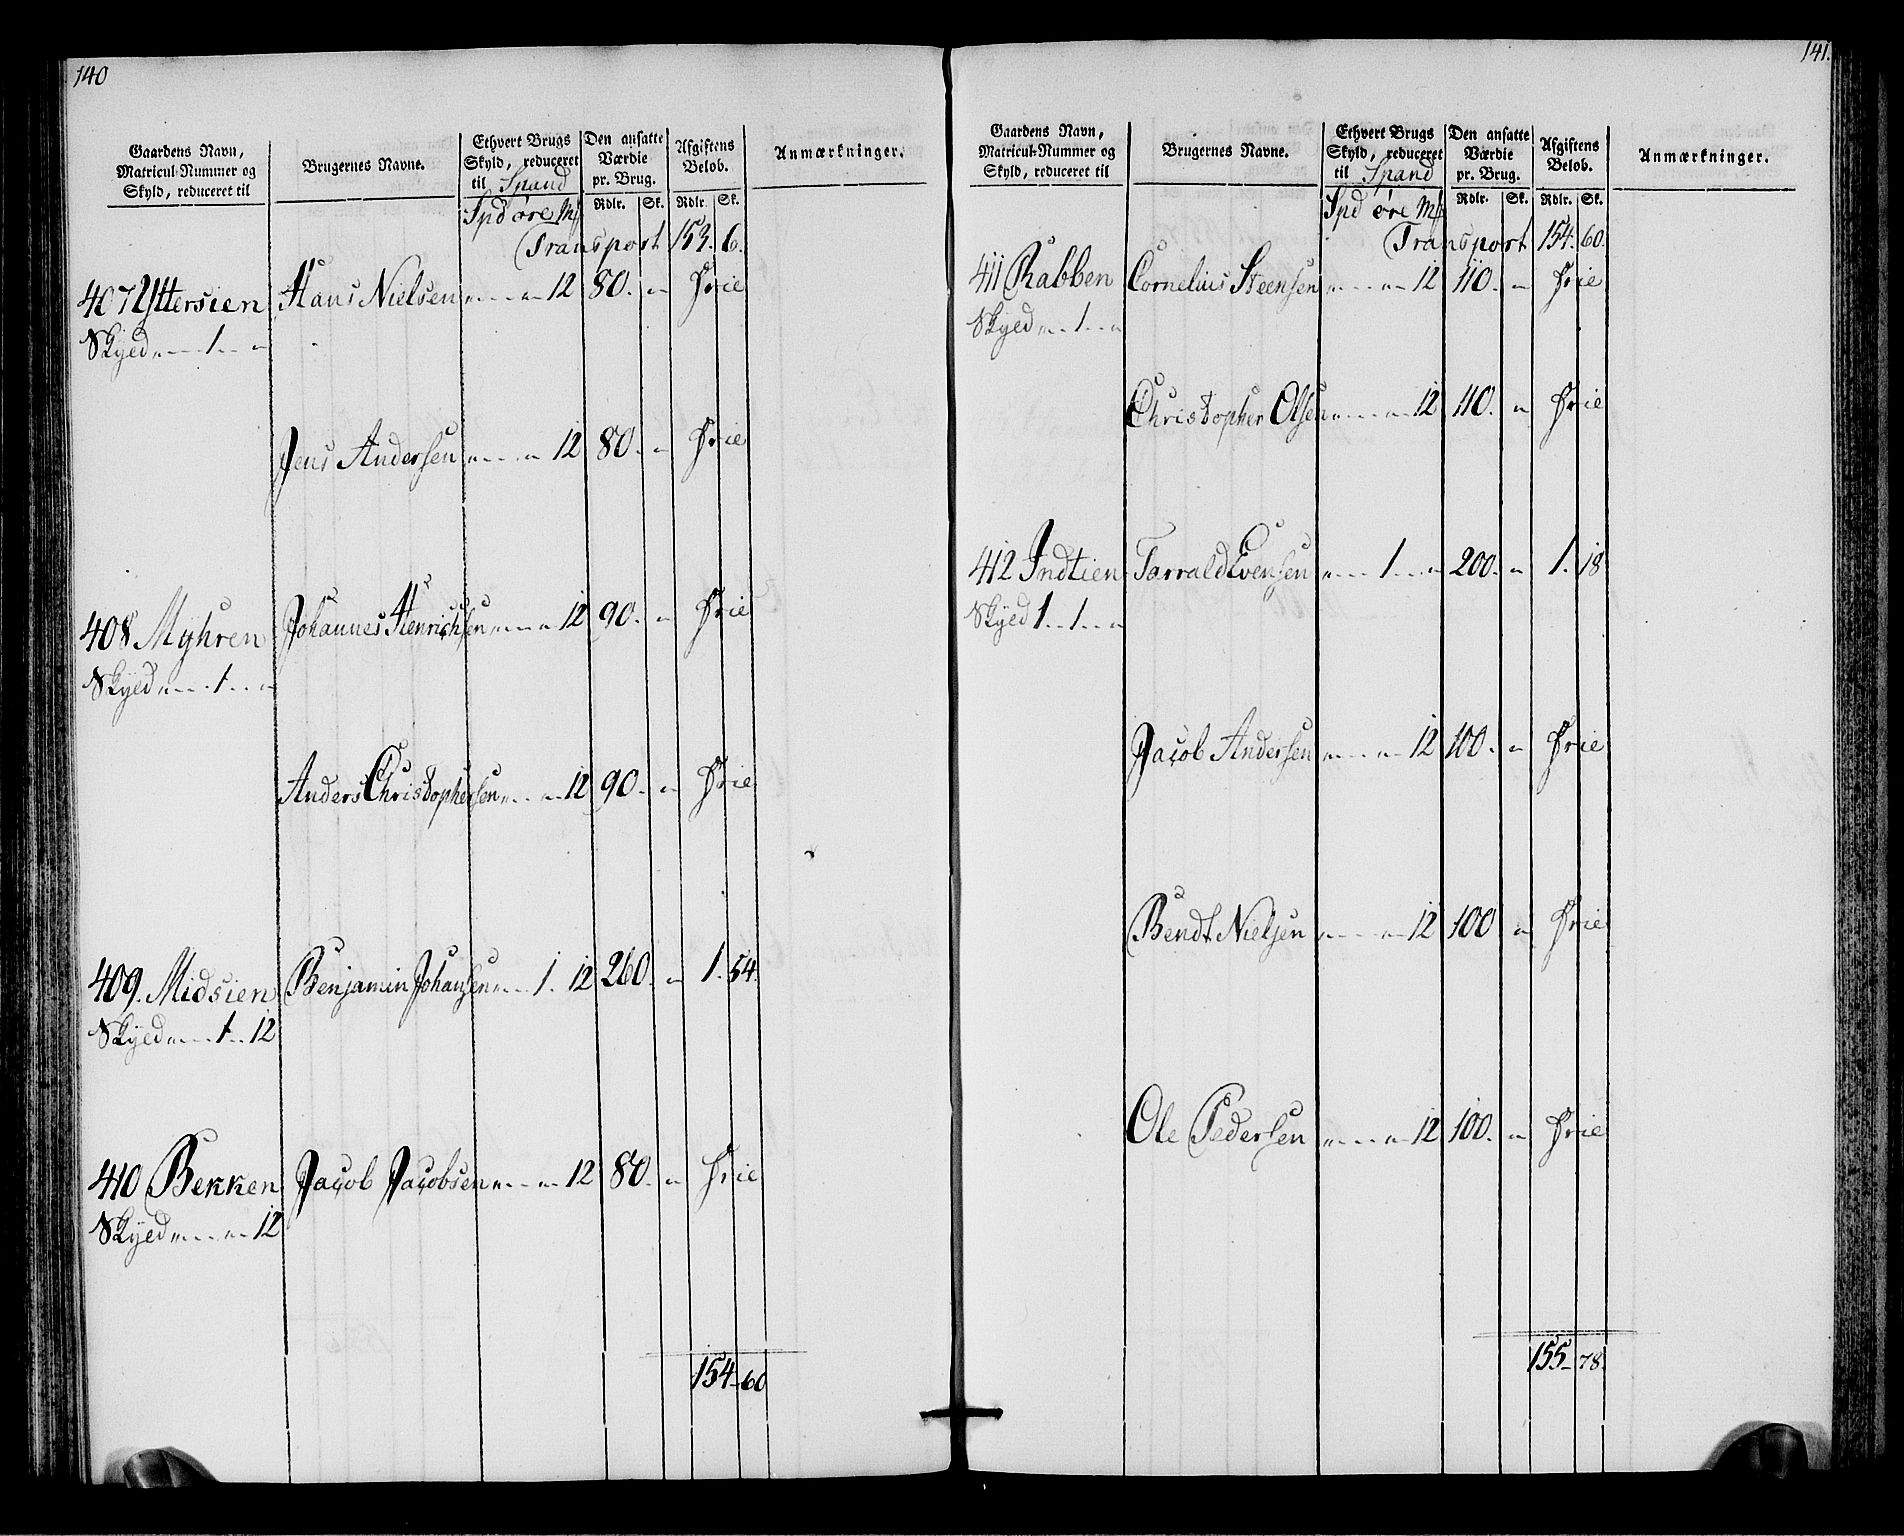 140
Gaardens Navn, Matricul-Nummer og Skyld, reduceret til
Brugernes Navne.
Ethvert Brugs Skyld, reduceret til Spand
Den ansatte Værdie pr. Brug.
Afgiftens Beløb.
Anmærkninger.
Spd øre Mk Rdlr. Sk. Rdlr. Sk.
Transport 153. 6.
407 Yttersien Hans Nielsen „ - - „ - 12 80. „ Frie
Skyed „ - - 1 - - „
Jens Andersen „ - - - „ 12 80. „ Frie
408 Myhren Johannes Henrichsen „ - - „ 12 90. „ Frie
Skyed „ - - 1 - - „
Anders Christophersen „ - - „ 12 90. „ Frie
409. Midsien Benjamin Johansen „ - - 1. 12 260. „ 1. 54.
Skyed „ - - 1 - - 12
410 Bekken Jacob Jacobsen „ - - „ - 12 80. „ Frie
Skyed „ - - „ - 12
154 - 60
141.
Gaardens Navn, Matricul-Nummer og Skyld, reduceret til
Brugernes Navne.
Ethvert Brugs Skyld, reduceret til Spand
Den ansatte Værdie pr. Brug.
Afgiftens Beløb.
Anmærkninger.
Spd øre Mk Rdlr. Sk. Rdlr. Sk.
Transport 154. 60.
411 Rabben Cornelius Steensen „ - - „ - 12 110. „ Frie
Skyed „ - - 1 - - „
Christopher Olsen „ - - „ - 12 110. „ Frie
412 Indtien Tarrald Evensen „ - - 1 - - „ 200. „ 1. 18
Skyed 1 - - 1 - - „
Jacob Andersen „ - - „ - 12 100. „ Frie
Bendt Nielsen „ - - „ - 12 100 „ Frie
Ole Pedersen „ - - „ - 12 100. „ Frie
155 - 78.